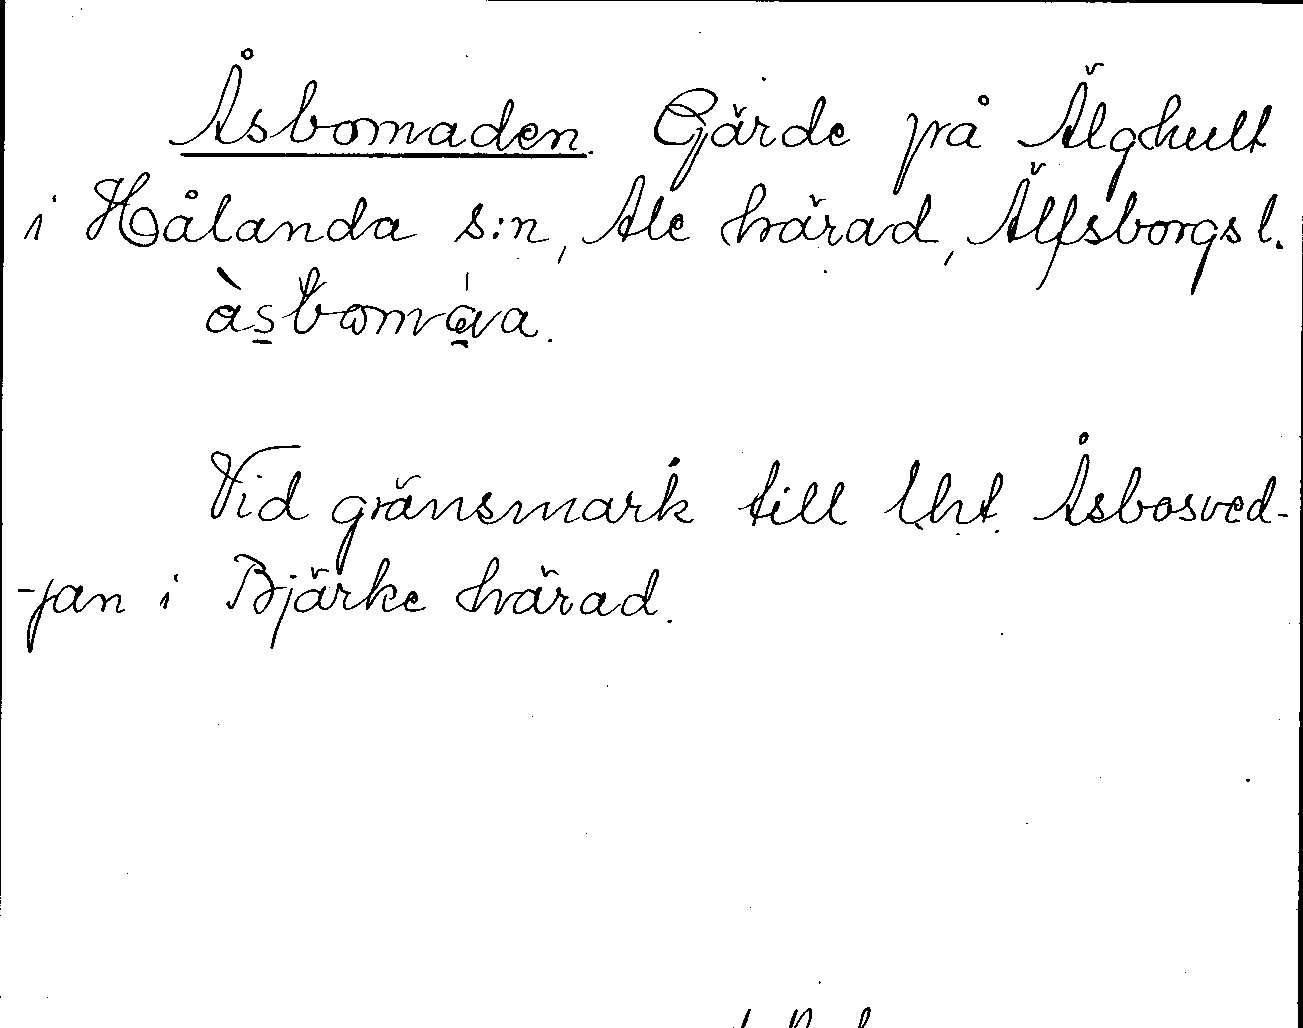 Åsbomaden. Gärde på Älghult
i Hålanda s:n, Ale härad, Älfsborgs l.
Vid gränsmark till lht. Åsbosved-
-jan i Bjärke härad.